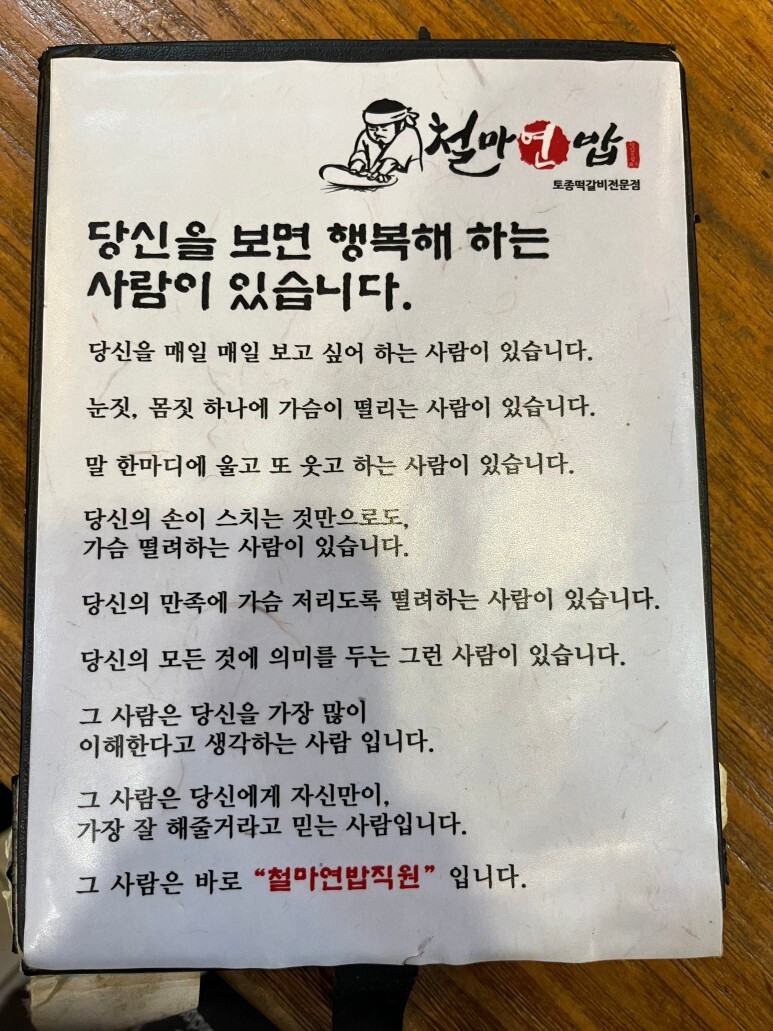 철마연밥
토종떡갈비전문점
당신을 보면 행복해 하는
사람이 있습니다.
당신을 매일 매일 보고 싶어 하는 사람이 있습니다.
눈짓, 몸짓 하나에 가슴이 떨리는 사람이 있습니다.
말 한마디에 울고 또 웃고 하는 사람이 있습니다.
당신의 손이 스치는 것만으로도,
가슴 떨려하는 사람이 있습니다.
당신의 만족에 가슴 저리도록 떨려하는 사람이 있습니다.
당신의 모든 것에 의미를 두는 그런 사람이 있습니다.
그 사람은 당신을 가장 많이
이해한다고 생각하는 사람 입니다.
그 사람은 당신에게 자신만이,
가장 잘 해줄거라고 믿는 사람입니다.
그 사람은 바로 “철마연밥직원” 입니다.